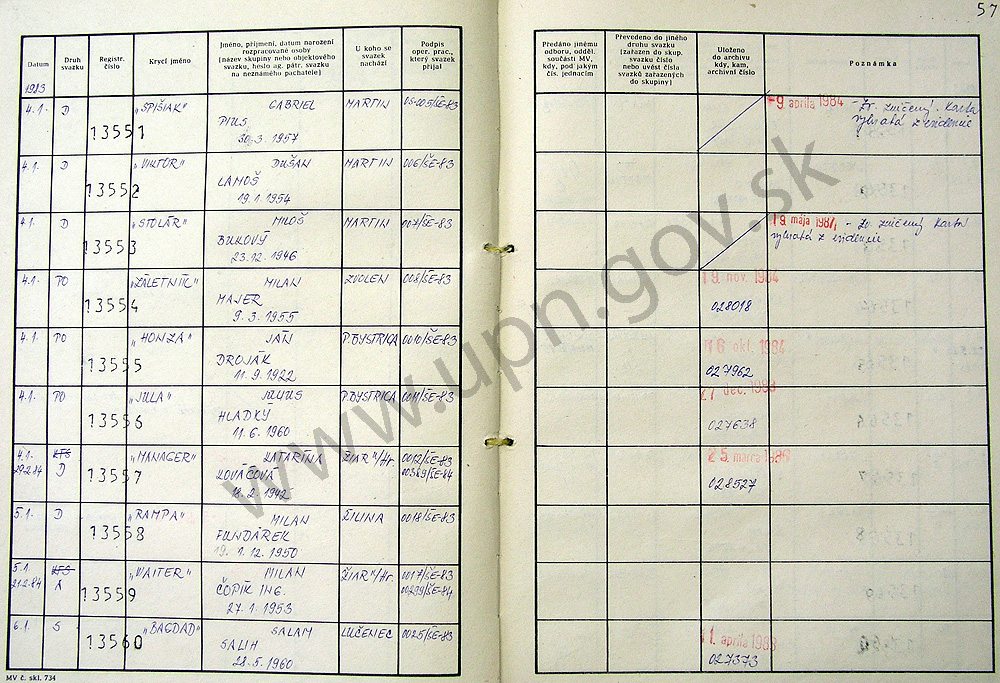 57
Datum
Druh svazku
Registr. číslo
Krycí jméno
Jméno, příjmení, datum narození
rozpracované osoby
(název skupiny nebo objektového
svazku, heslo ag. pátr. svazku
na neznámého pachatele)
U koho se
svazek
nachází
Podpis
oper. prac.,
který svazek
přijal
Předáno jinému
odboru, odděl.
součásti MV,
kdy, pod jakým
čís. jednacím
Převedeno do jiného
druhu svazku
(zařazen do skup.
svazku číslo
nebo uvést čísla
svazků zařazených
do skupiny)
Uloženo
do archivu
kdy, kam,
archivní číslo
Poznámka
1983
4.1. D 13551 „SPIŠIAK" GABRIEL MARTIN 005/ŠE-83
PIUS
30.3. 1957
9. apríla 1984 - Zv. zničený. Karta
vybratá z evidencie
4.1. D 13552 „VIKTOR" DUŠAN MARTIN 006/ŠE-83
LAMOŠ
19.1. 1954
4.1. D 13553 „STOLÁR" MILOŠ MARTIN 007/ŠE-83
BUKOVÝ
23.12. 1946
19. mája 1987 - Zv. zničený Karta
vybratá z evidencie
4.1. PO 13554 „ZÁLETNÍK" MILAN ZVOLEN 008/ŠE-83
MAJER
9.3. 1955
19. nov. 1984
028018
4.1. PO 13555 „HONZA" JÁN P.BYSTRICA 0010/ŠE-83
DROJÁK
11.9. 1922
16. okt. 1984
027962
4.1. PO 13556 „JULA" JÚLIUS P.BYSTRICA 0011/ŠE-83
HLADKÝ
11.6. 1960
27. dec. 1983
027638
4.1. KTS 13557 „MANAGER" KATARÍNA ŽIAR n/Hr. 0012/ŠE-83
29.2.84 D KOVÁČOVÁ 00369/ŠE-84
18.2. 1942
25. marca 1986
028527
5.1. D 13558 „RAMPA" MILAN ŽILINA 0018/ŠE-83
FUNDÁREK
19.12. 1950
5.1. KTS 13559 „WAITER" MILAN ŽIAR n/Hr. 0017/ŠE-83
21.2.84 A ČOPÍK ING. 00299/ŠE-84
27.1. 1953
6.1. S 13560 „BAGDAD" SALAM LUČENEC 0025/ŠE-83
SALIH
28.5. 1960
11. apríla 1983
027373
MV č. skl. 734
www.upn.gov.sk